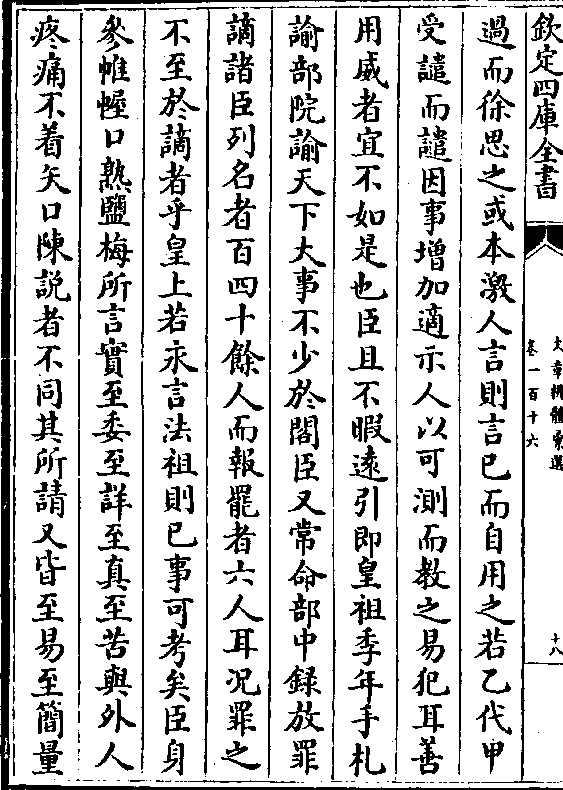 欽定四庫全書
文章辨體彙選
卷一百十六
十八
過而徐思之或本激人言則言已而自用之若乙代甲
受譴而譴因事增加適示人以可測而教之易犯耳善
用威者宜不如是也臣且不暇遠引即皇祖季年手札
諭部院諭天下大事不少於閣臣又常命部中録放罪
謫諸臣列名者百四十餘人而報罷者六人耳况罪之
不至於謫者乎皇上若永言法祖則已事可考矣臣身
參帷幄口熟鹽梅所言實至委至詳至真至苦與外人
疼痛不着矢口陳説者不同其所請又皆至易至簡量